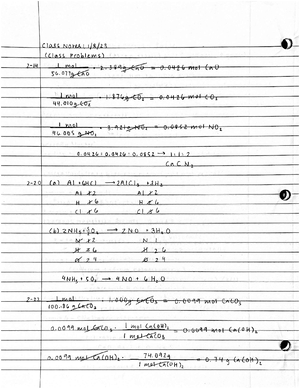 Class Notes: 1/8/23
(Class Problems)
1 mol / 56.077g CaO · 2.389g CaO = 0.0426 mol CaO
1 mol / 44.010g CO₂ · 1.876g CO₂ = 0.0426 mol CO₂
1 mol / 46.005g NO₂ · 3.921g NO₂ = 0.0852 mol NO₂
0.0426 : 0.0426 : 0.0852 → 1:1:2
CaCN₂
3-20 (a) Al + 6HCl → 2AlCl₃ + 3H₂
Al 1 2 Al 1 2
H 1 6 H 2 6
Cl 1 6 Cl 3 6
(b) 2NH₃ + 5/2 O₂ → 2NO + 3H₂O
N 1 2 N 1
4NH₃ + 5O₂ → 4NO + 6H₂O
1 mol / 100.86g CaCO₃ · 1.000g CaCO₃ = 0.0099 mol CaCO₃
0.0099 mol CaCO₃ · 1 mol Ca(OH)₂ / 1 mol CaCO₃ = 0.0099 mol Ca(OH)₂
0.0099 mol Ca(OH)₂ · 74.092g / 1 mol Ca(OH)₂ = 0.74 g Ca(OH)₂